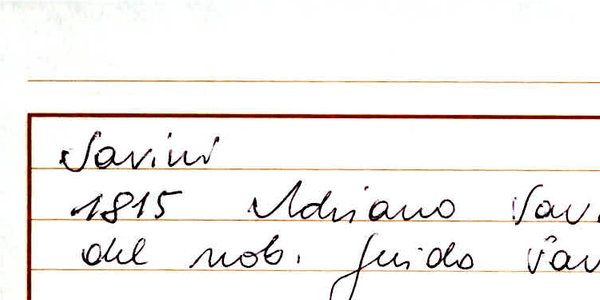 Savini
1815 Adriano Sav
del nob. Guido Sav